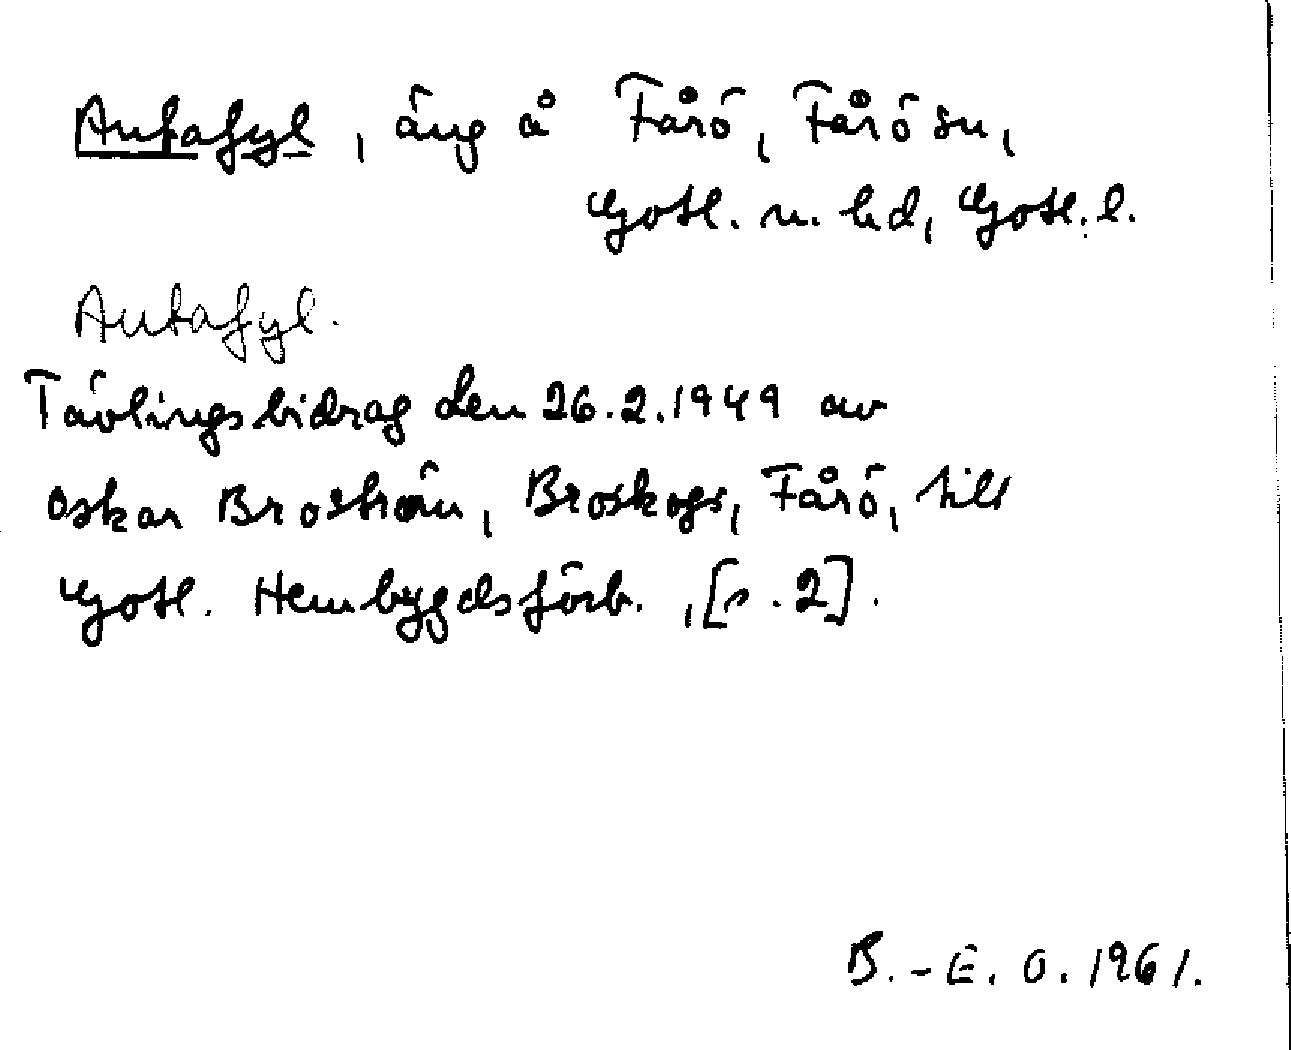 Autafyl, äng å Fårö, Fårö sn,
Gotl. n. hd, Gotl. l.
Autafyl.
Tävlingsbidrag den 26.2.1949 av
Oskar Broström, Broskogs, Fårö, till
Gotl. Hembygdsförb., [s. 2].
B.-E. O. 1961.